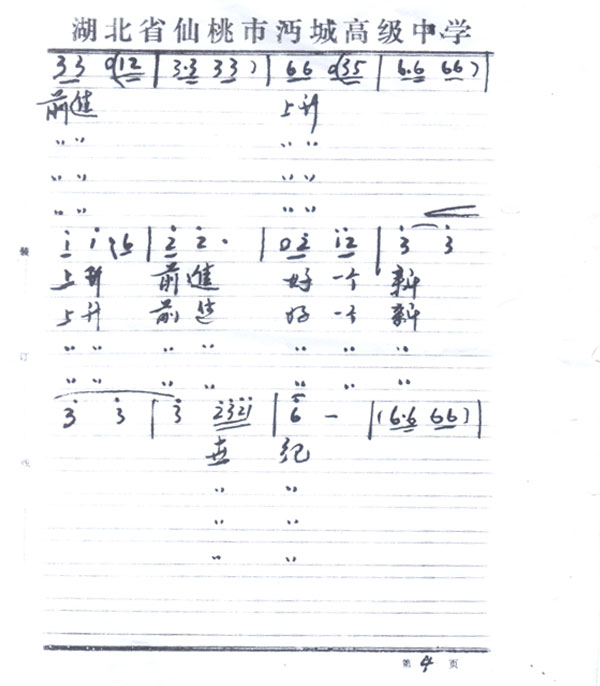 湖北省仙桃市沔城高级中学
33 0(12 | 3·3 33) | 66 0(35 | 6·6 66)
前進 上升
〃 〃 〃 〃
〃 〃 〃 〃
〃 〃 〃 〃
i̇ i̇ | 2̇ 2̇· | 02̇ 1̇2̇ | 3̇ 3̇
上升 前進 好 一个 新
上升 前進 好 一个 新
〃 〃 〃 〃 〃 〃 〃
〃 〃 〃 〃 〃 〃 〃
3̇ 3̇ | 3̇ 2̇3̇2̇1̇ | 6 — | (6·6 66)
世 纪
〃 〃
〃 〃
〃 〃
装
订
第 4 页